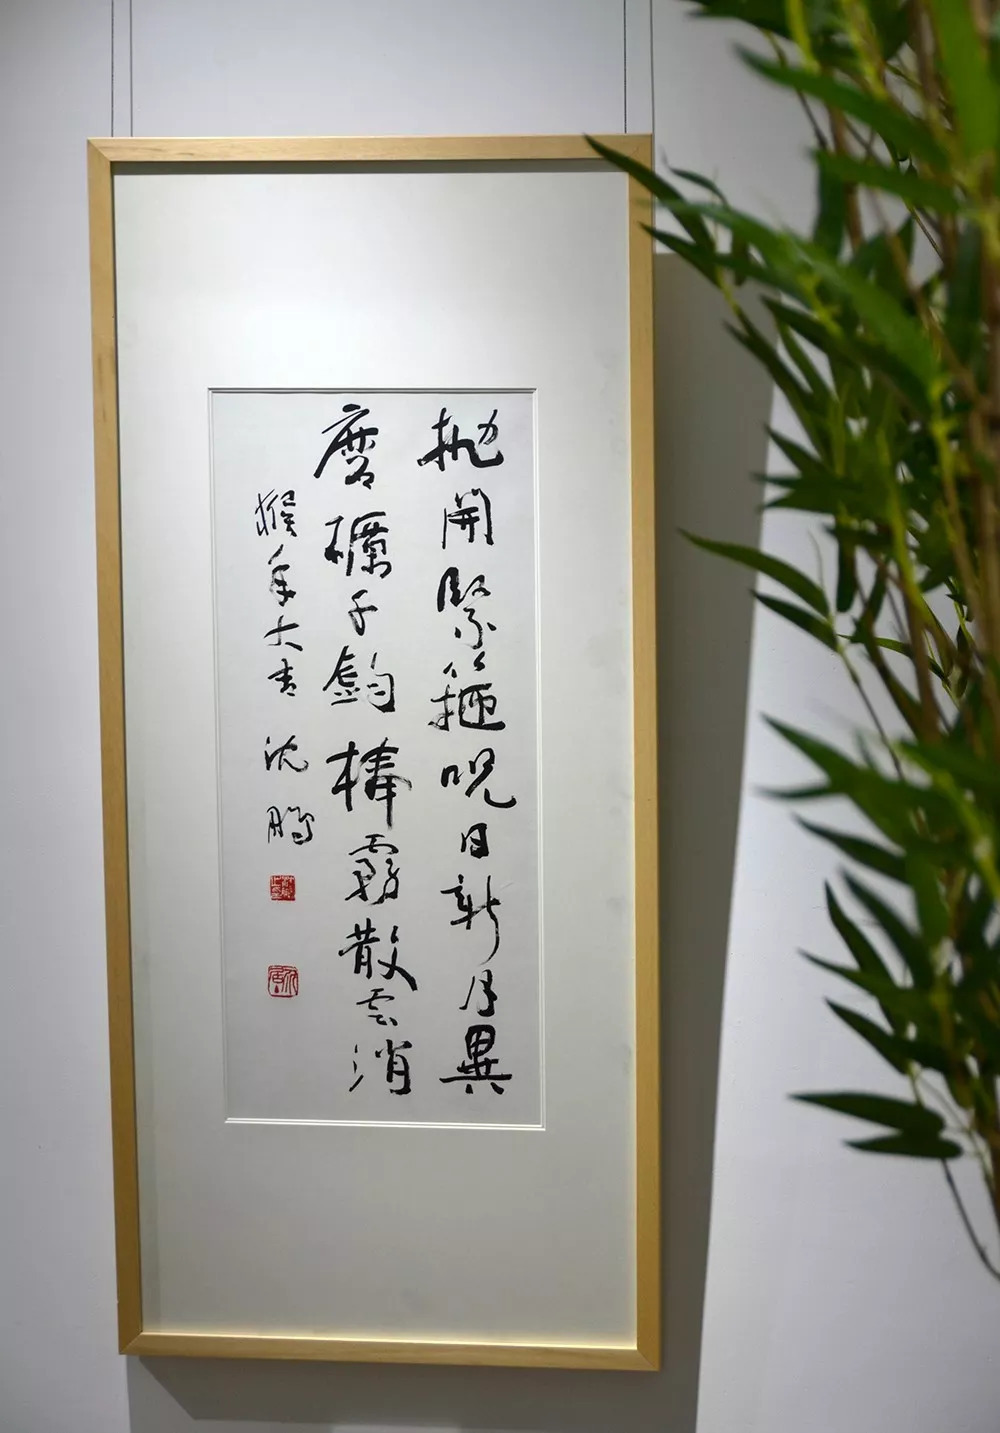 抛開緊箍呪日新月異
磨櫔千鈞棒霧散雲消
猴年大吉 沈鵬